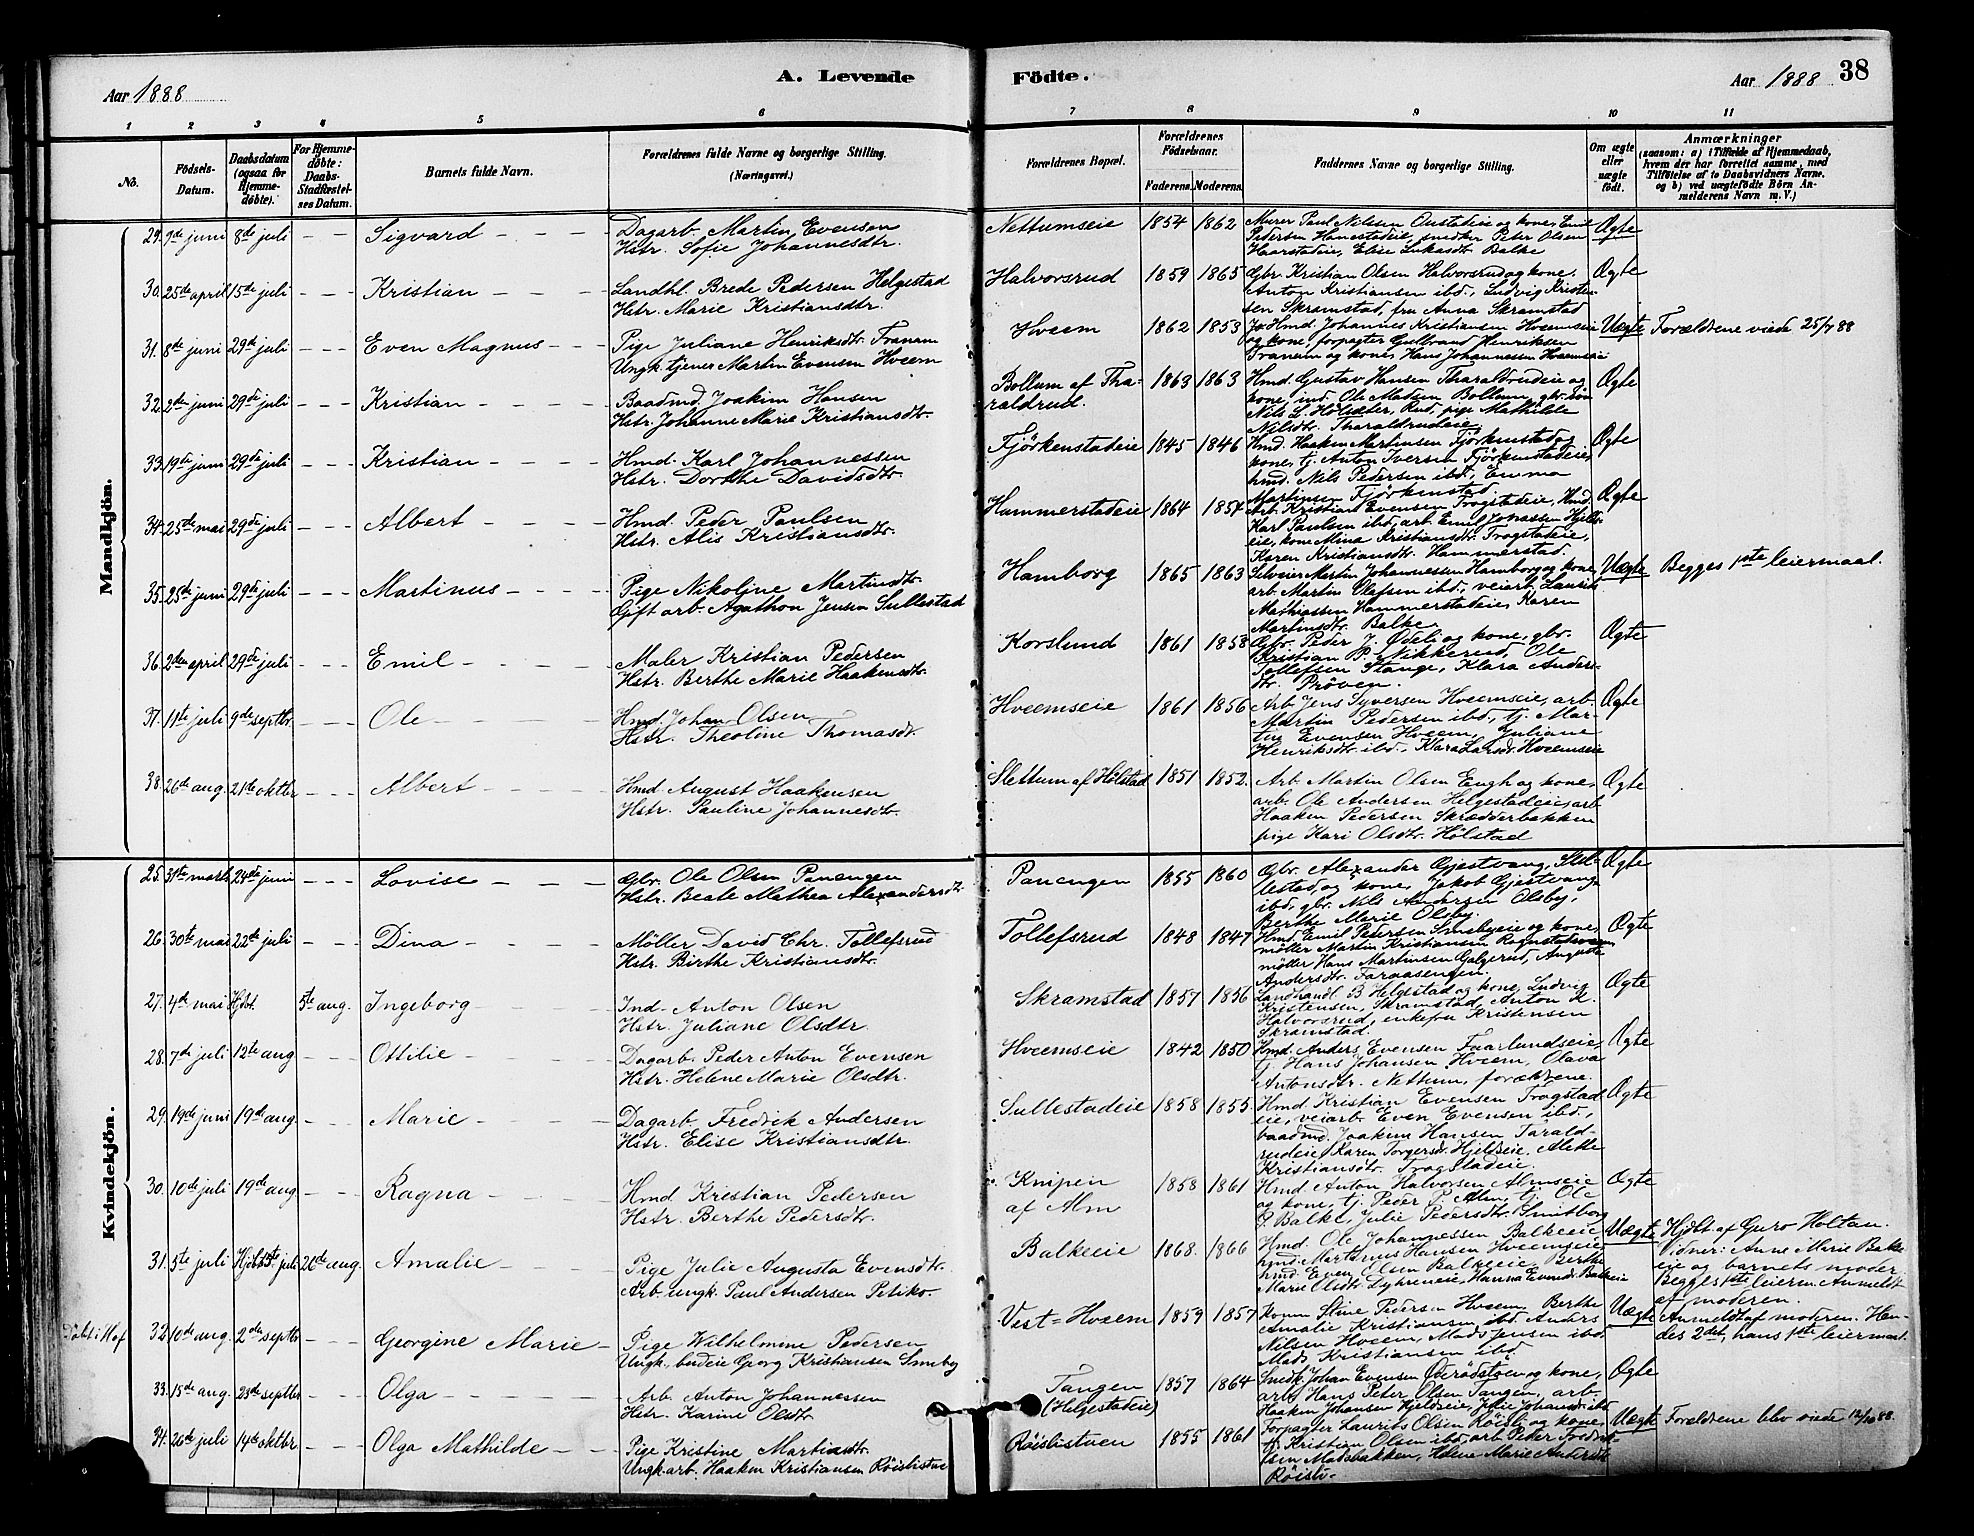 A. Levende
Födte.
Aar 1888
Aar 1888
38
1 2 3 4 5 6 7 8 9 10 11
No.
Födsels-
Datum.
Daabsdatum
(ogsaa for
Hjemme-
döbte).
For Hjemme-
døbte:
Daabs-
Stadfæstel-
ses Datum.
Barnets fulde Navn.
Forældrenes fulde Navne og borgerlige Stilling.
(Næringsvei.)
Forældrenes Bopæl.
Forældrenes
Födselsaar.
Faderens. Moderens.
Faddernes Navne og borgerlige Stilling.
Om ægte
eller
uægte
født.
Anmærkninger
(saasom: a) i Tilfælde af Hjemmedaab,
hvem der har forrettet samme, med
Tilføielse af to Daabsvidners Navne,
og b) ved uægtefødte Börn An-
melderens Navn m. V.)
Mandkjön.
29. 9de juni 8de juli - - Sigvard - - - Dagarb. Martin Evensen
Hstr. Sofie Johannesdtr.
Nettumseie 1854 1862 Murer Paul Nilsen Onstadeie og kone, Emil
Pedersen Hanestadeie, snidker Peter Olsen
Haarstadeie, Elise Lukasdtr. Balke
Ægte
30. 25de april 15de juli - - - Kristian - - - Landhl. Brede Pedersen Helgestad
Hstr. Marie Kristiansdtr.
Halvorsrud 1859 1865 Gbr. Kristian Olsen Halvorsrud og kone,
Anton Kristiansen ibd., Ludvig Kristen-
sen Skramstad, fru Anna Skramstad
Ægte
31. 8de juni 29de juli - - - Even Magnus - - - Pige Juliane Henriksdtr. Franum
Ungk. tjener Martin Evensen Hveem
Hveem 1862 1853 Hmd. Johannes Kristiansen Hveemseie
og kone, forpagter Gulbrand Henriksen
Franum og kone, Hans Johannessen Hveemseie
Uægte Forældrene viede 25/7 88
32. 2den juni 29de juli - - - Kristian - - - - Baadmd. Joakim Hansen
Hstr. Johanne Marie Kristiansdtr.
Bollum af Tha-
raldrud. 1863 1863 Hmd. Gustav Hansen Tharaldrudeie og
kone, ind. Ole Madsen Bollum, gbr. søn
Nils L. Hölsæter, Rud, pige Mathilde
Nilsdtr. Tharaldrudeie
Ægte
33. 19de juni 29de juli - - - Kristian - - - - Hmd. Karl Johannessen
Hstr. Dorthe Davidsdtr.
Fjörkenstadeie 1845 1846 Hmd. Haaken Martinsen Fjörkenstad og
kone, tj. Anton Iversen Fjörkenstadeie,
hmd. Nils Pedersen ibd., Emma
Martinsen Fjörkenstad
Ægte
34. 25de mai 29de juli - - - Albert - - - - Hmd. Peder Paulsen
Hstr. Alis Kristiansdtr.
Hammerstadeie 1864 1854 Arb. Kristian Evensen Trogstadeie, Hmd.
Karl Paulsen ibd., arb. Emil Jonassen Hjells-
eie, kone Mina Kristiansdtr. Trogstadeie,
Karen Kristiansdtr. Hammerstad.
Ægte
35. 25de juni 29de juli - - - Martinus - - - - Pige Nikoline Martinsdtr.
Gift arb. Agathon Jensen Sullestad
Hamborg 1865 1863 Selveier Martin Johannessen Hamborg og kone
arb. Martin Olafsen ibd., veiarb. Laurits
Mathiassen Hammerstadeie, Karen
Martinsdtr. Balke
Uægte Begges 1ste leiermaal.
36. 2den april 29de juli - - - Emil - - - - Maler Kristian Pedersen
Hstr. Berthe Marie Haakensdtr.
Korslund 1861 1858 Gbr. Peder J. Ödeli og kone, gbr.
Kristian P. Nikkerud, Ole
Tollefsen Stange, Klara Anders-
dtr. Pröven.
Ægte
37. 11te juli 9de septbr. - - - Ole - - - - Hmd. Johan Olsen
Hstr. Theoline Thomasdtr.
Hveemseie 1861 1856 Arb. Jens Syversen Hveemseie, arb.
Martin Pedersen ibd., tj. Mar-
tin Evensen Hveem, Juliane
Henriksdtr ibd., Klara Larsdtr. Hveemseie
Ægte
38. 26de aug. 21de oktbr. - - - Albert - - - - Hmd. August Haakensen
Hstr. Pauline Johannesdtr.
Slettum af Hölstad 1851 1852 Arb. Martin Olsen Engh og kone,
arb. Ole Andersen Helgestadeie, arb.
Haaken Pedersen Skrædderbakken
pige Kari Olsdtr. Hölstad
Ægte
Kvindekjön.
25. 31te marts 24de juni - - - Lovise - - - Gbr. Ole Olsen Panengen
Hstr. Beate Mathea Alexandersdtr.
Panengen 1855 1860 Gbr. Alexander Gjestvang, Sul-
lestad og kone, Jakob Gjestvang
ibd., gbr. Nils Andersen Olsby,
Berthe Marie Olsby.
Ægte
26. 30te mai 22de juli - - - Dina - - - - Möller David Chr. Tollefsrud
Hstr. Birthe Kristiansdtr.
Tollefsrud 1848 1847 Hmd. Emil Pedersen Smebyeie og kone,
möller Martin Kristiansen
möller Hans Martinsen Galgerud, Augusta
Andersdtr. Faraasengen.
Ægte
27. 4de mai Hjdbt. 5te aug. Ingeborg - Ind. Anton Olsen
Hstr. Juliane Olsdtr.
Skramstad 1857 1856 Landhandl. B. Helgestad og kone, Ludvig
Kristensen, Skramstad, Anton K.
Halvorsrud, enkefru Kristensen
Skramstad.
Ægte
28. 7de juli 12te aug - - - Ottilie - - - Dagarb. Peder Anton Evensen
Hstr. Helene Marie Olsdtr.
Hveemseie 1842 1850 Hmd. Anders Evensen Faarlundseie,
tj. Hans Johansen Hveem, Olava
Antonsdtr. Nettum, forældrene.
Ægte
29. 19de juni 19de aug. - - - Marie - - - Dagarb. Fredrik Andersen
Hstr. Elise Kristiansdtr.
Sullestadeie 1858 1855. Hmd. Kristian Evensen Trogstad
eie, veiarb. Even Evensen ibd.,
baadmd. Joakim Hansen Tarald-
rudeie, Karen Torgersdtr. Hjeldseie, Alette
Kristiansdtr. Trogstadeie.
Ægte
30. 10de juli 19de aug - - - Ragna - - - Hmd. Kristian Pedersen
Hstr. Berthe Pedersdtr.
Knipen
af Alm 1858 1861 Hmd. Anton Halvorsen Almseie
og kone, tj. Peder P. Alm, tj. Ole
P. Balke, Julie Pedersdtr. Smitborg
Ægte
31. 5te juli Hjdbt 5te juli 26de aug. Amalie - - Pige Julie Augusta Evensdtr.
Arb. ungk. Paul Andersen Petiko.
Balkeeie 1868. 1866 Hmd. Ole Johannessen Balkeeie
hmd. Martinus Hansen Hveemseie,
hmd. Even Olsen Balkeeie, Berthe
Marie Olsdtr. Lyhreneie, Hanna Evensdtr. Balkeeie
Uægte Hjdbt. af Guro Holtan.
Vidner: Anne Marie Balke
eie og barnets moder
Begges 1ste leierm. Anmeldt
af moderen.
Döbt i Hof 32 10de aug. 2den septbr. - - - Georgine Marie - Pige Wilhelmine Pedersen
Ungk. budeie Georg Kristiansen Smeby
Vest-Hveem 1859 1857 Konen Stine Pedersen Hveem, Berthe
Amalie Kristiansen ibd. Anders
Nilsen Hveem, Mads Jensen ibd.
Mads Kristiansen ibd.
Uægte Anmeldt af moderen. Hen-
des 2det, hans 1ste leiermaal.
33. 15de aug. 23de septbr. - - - Olga - - - - Arb. Anton Johannessen
Hstr. Karine Olsdtr.
Tangen
(Helgestadeie) 1857 1864 Smidk. Johan Evensen og kone,
arb. Hans Peter Olsen Tangen, arb.
Haaken Johansen Hjeldseie, Julie Johansdtr. ibd.
Ægte
34. 26de juli 14de oktbr. - - - Olga Mathilde - - Pige Kristine Martinsdtr.
Ungk. arb. Haaken Kristiansen Röislistue
Röislistuen 1855 1861 Forpagter Laurits Olsen Röisli og kone,
tj. Kristian Olsen ibd., arb. Peter Fredrik-
sen Madsbakken, Helene Marie Andersdtr.
Röisli.
Uægte Forældrene blev viede 12/10 88.